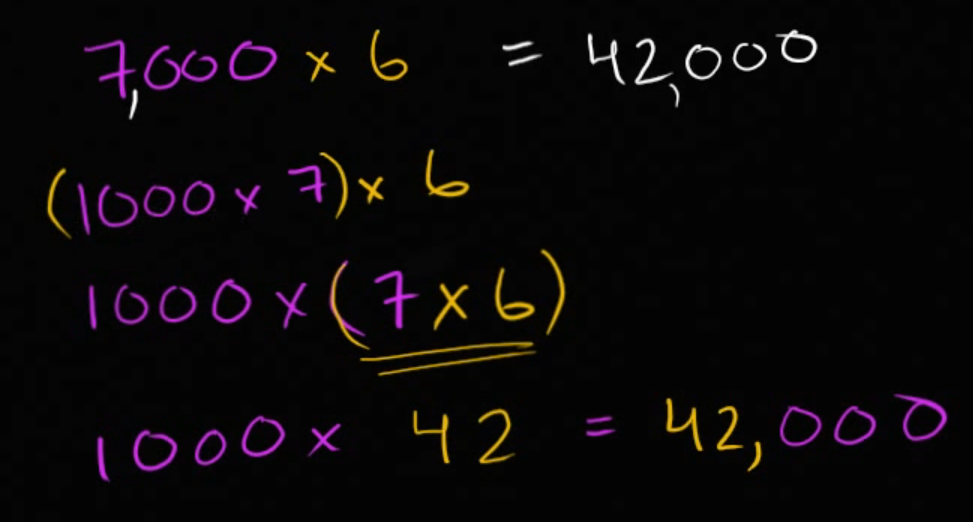 7,000 × 6 = 42,000
(1000 × 7) × 6
1000 × (7 × 6)
1000 × 42 = 42,000